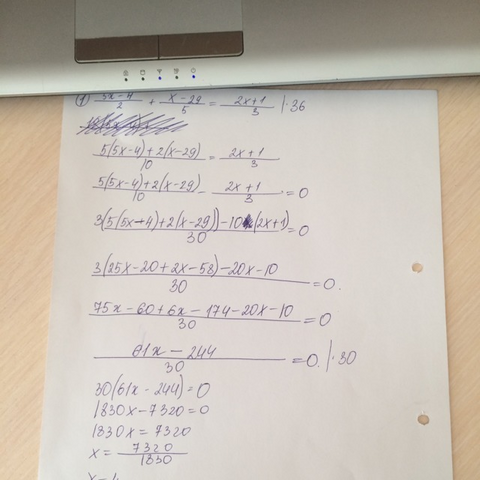 1) 5x-4/2 + x-29/5 = 2x+1/3 |·36
5(5x-4)+2(x-29)/10 = 2x+1/3
5(5x-4)+2(x-29)/10 - 2x+1/3 = 0
3(5(5x-4)+2(x-29))-10(2x+1)/30 = 0
3(25x-20+2x-58)-20x-10/30 = 0.
75x-60+6x-174-20x-10/30 = 0
61x-244/30 = 0. |·30
30(61x-244)=0
1830x-7320=0
1830x=7320
x = 7320/1830
x=4